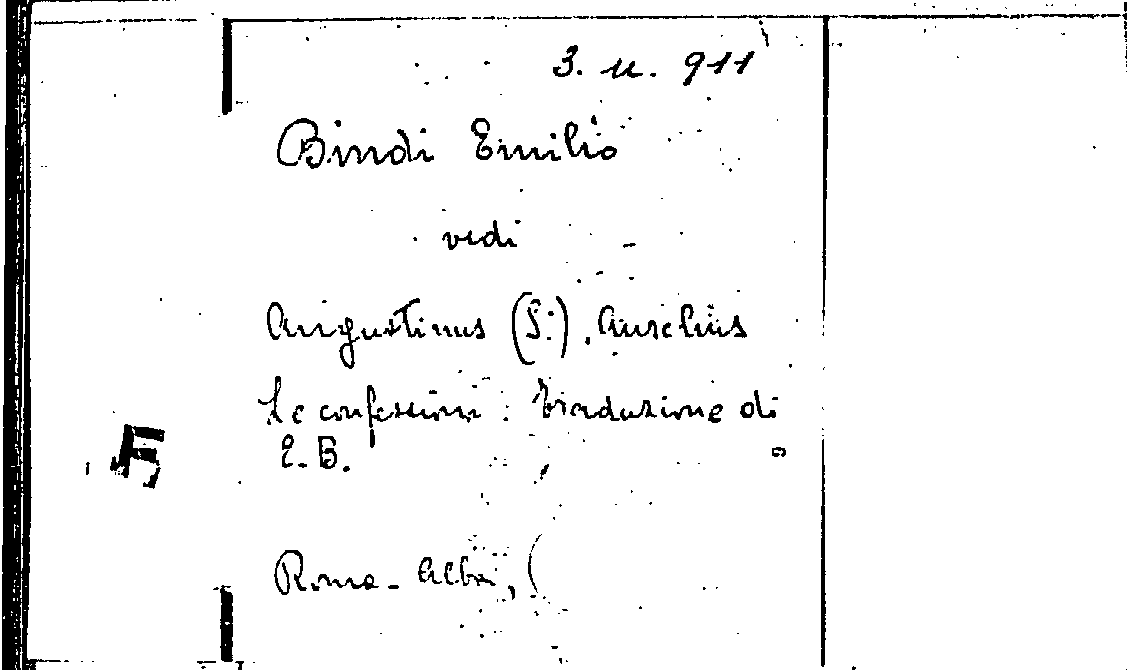 3. u. 911
Bindi Emilio
vedi
Augustinus (S:). Aurelius
Le confessioni. Traduzione di
E. B.
Roma - Alba,